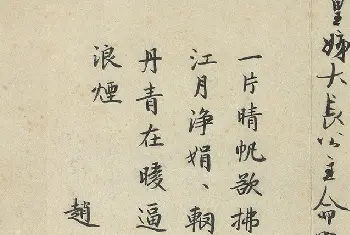 皇姊大長公主命
一片晴帆欲拂
江月淨娟、輞
丹青在暖逼
浪煙
趙